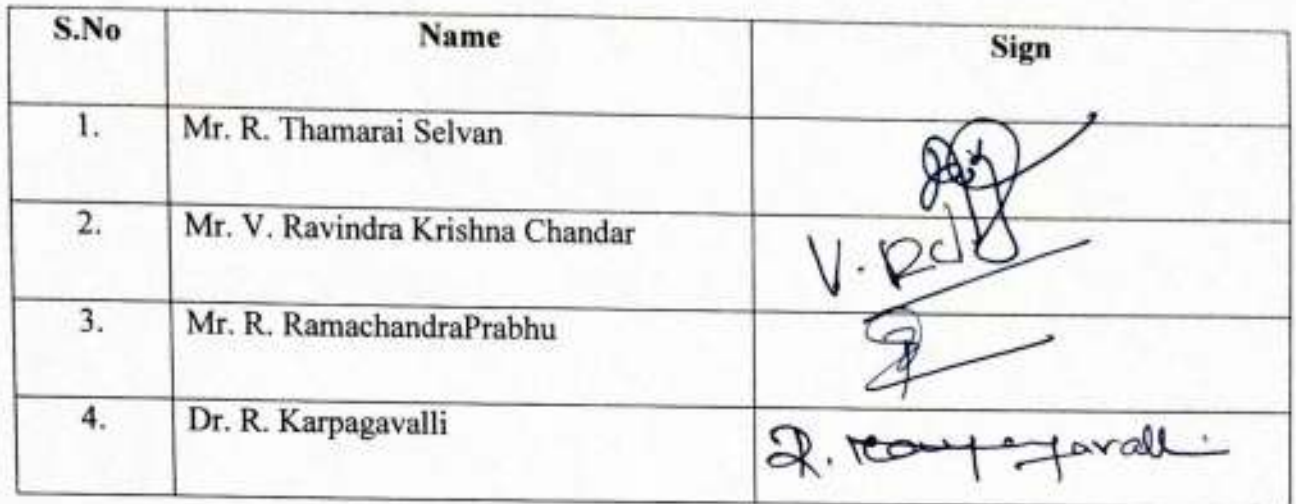 S.No Name Sign
1. Mr. R. Thamarai Selvan
2. Mr. V. Ravindra Krishna Chandar V.
3. Mr. R. RamachandraPrabhu
4. Dr. R. Karpagavalli R. Karpagavalli